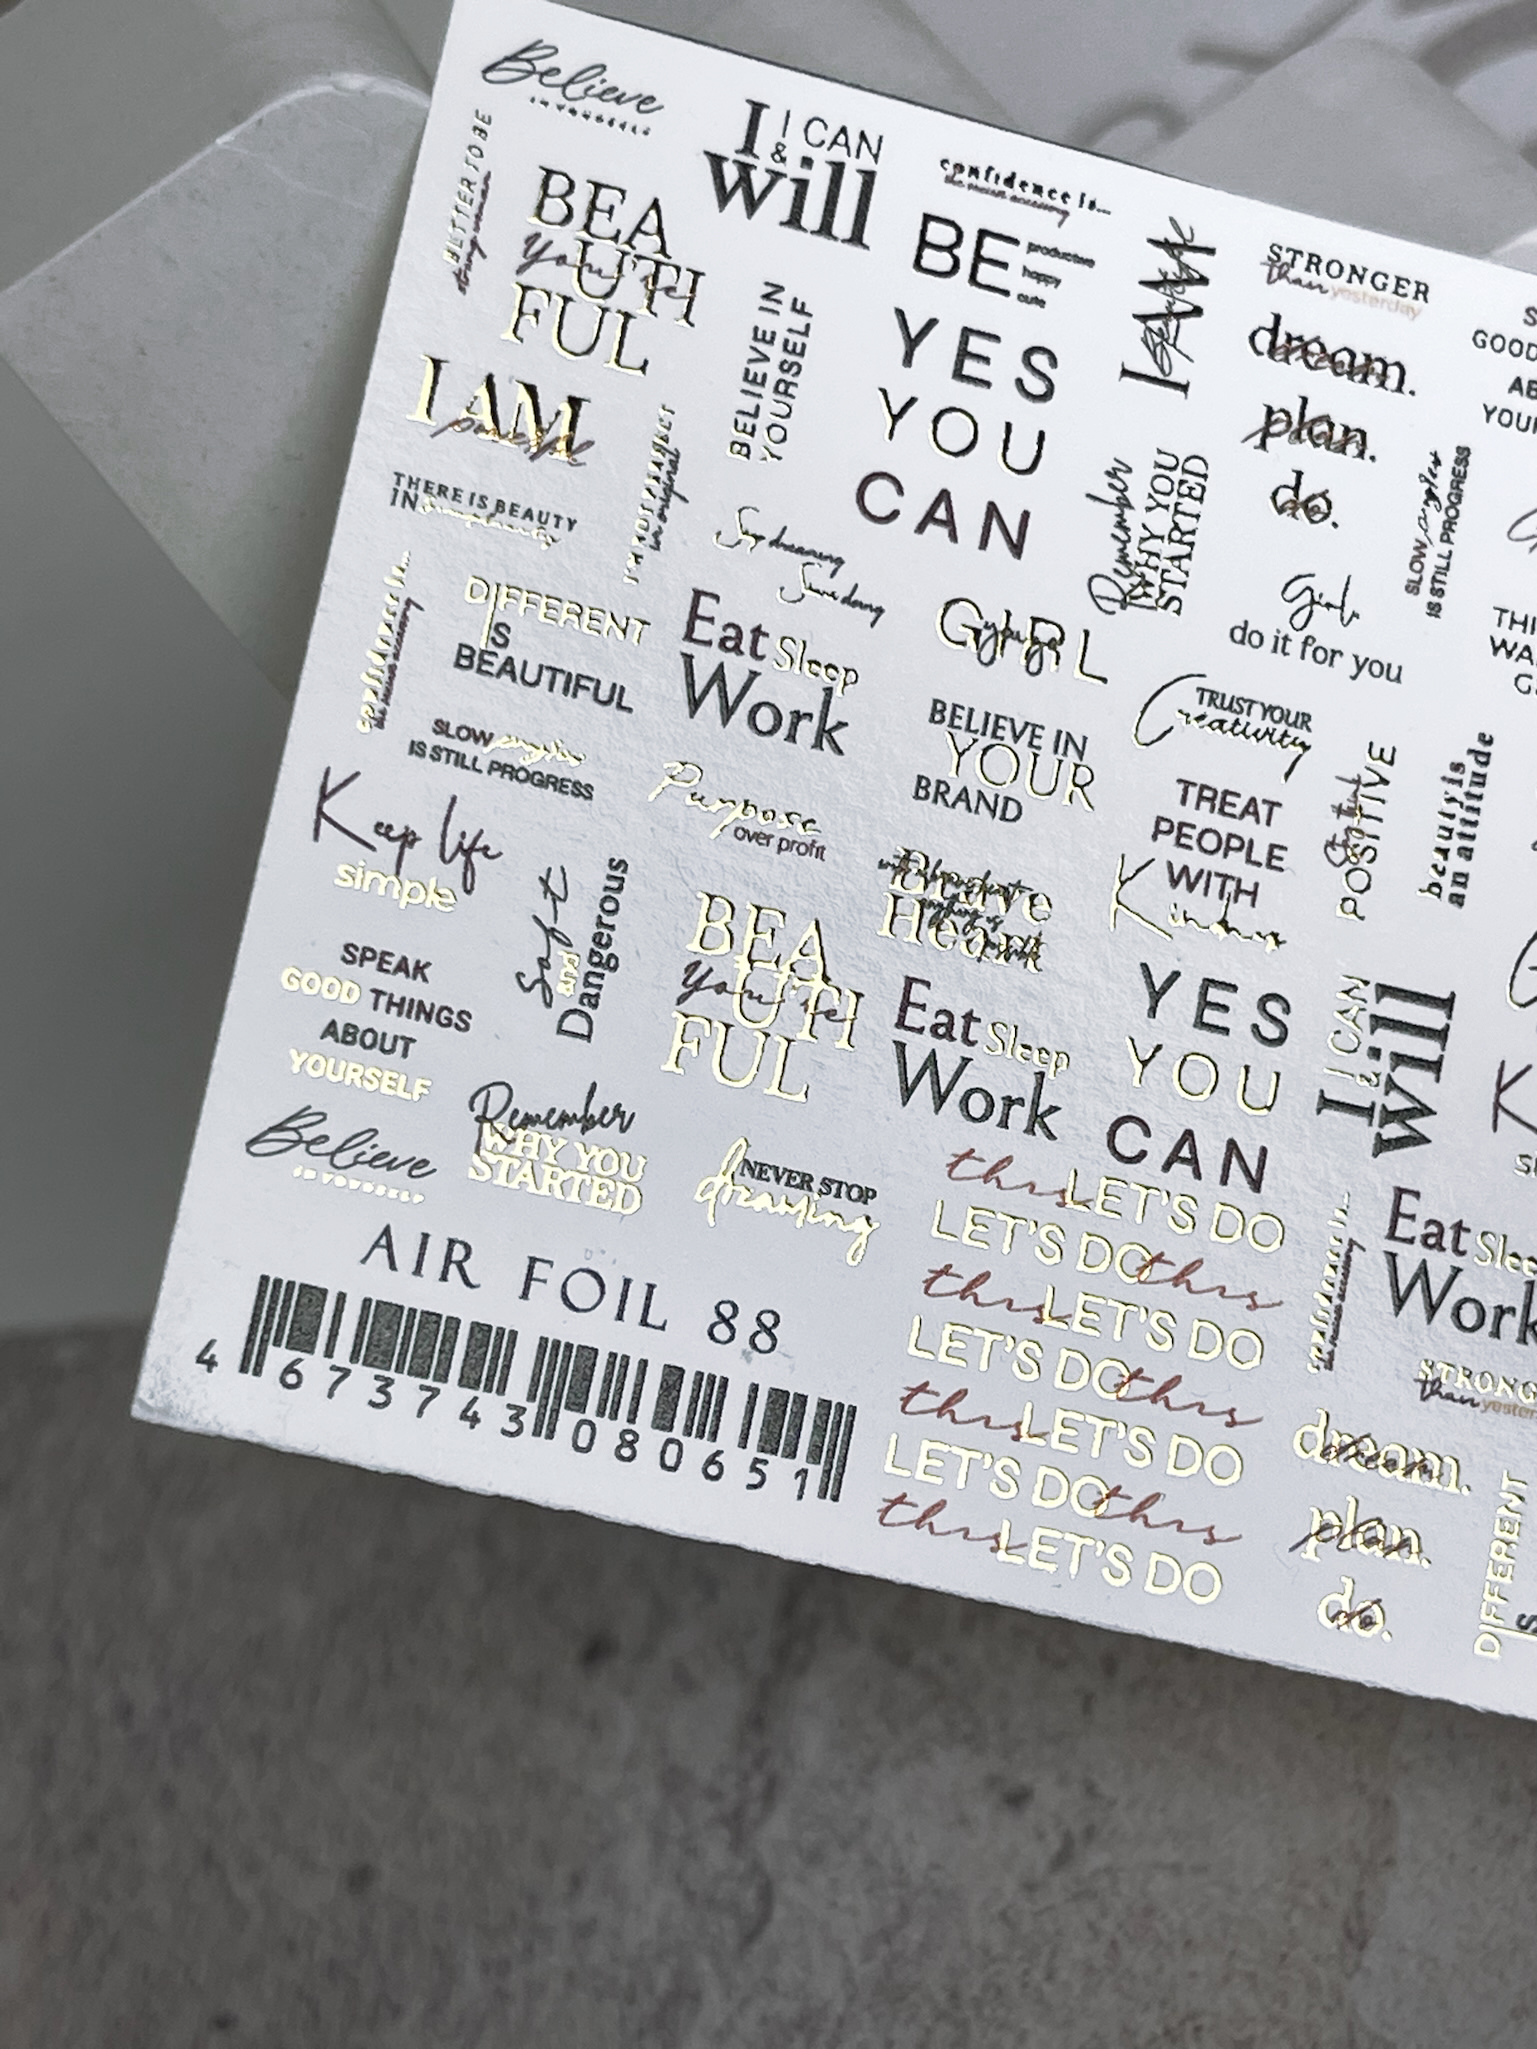 Believe
IN YOURSELF
BETTER TO BE
strong woman
BEA
You're
UTI
FUL
I AM
powerful
THERE IS BEAUTY
IN simplicity
I I CAN
&
will
confidence is...
BE
productive
happy
cute
BELIEVE IN
YOURSELF
YES
YOU
CAN
I AM
STRONGER
than yesterday
dream.
plan.
do.
in original
Stop dreaming
Start doing
Remember
WHY YOU
STARTED
SLOW progress
IS STILL PROGRESS
Girl
do it for you
confidence is...
DIFFERENT
IS
BEAUTIFUL
Eat Sleep
Work
GIRL
BELIEVE IN
YOUR
BRAND
TRUST YOUR
Creativity
SLOW progress
IS STILL PROGRESS
Purpose
over profit
TREAT
PEOPLE
WITH
Kindness
Stay
POSITIVE
beauty is
an attitude
Keep life
simple
Soft
and
Dangerous
BEA
You're
UTI
FUL
Brave
Heart
SPEAK
GOOD THINGS
ABOUT
YOURSELF
Eat Sleep
Work
YES
YOU
CAN
I I CAN
&
will
Believe
IN YOURSELF
Remember
WHY YOU
STARTED
NEVER STOP
dreaming
this LET'S DO
LET'S DO this
this LET'S DO
LET'S DO this
this LET'S DO
LET'S DO this
this LET'S DO
confidence is...
Eat Sleep
Work
than yester
dream.
plan.
do.
DIFFERENT
AIR FOIL 88
4 673743 080651